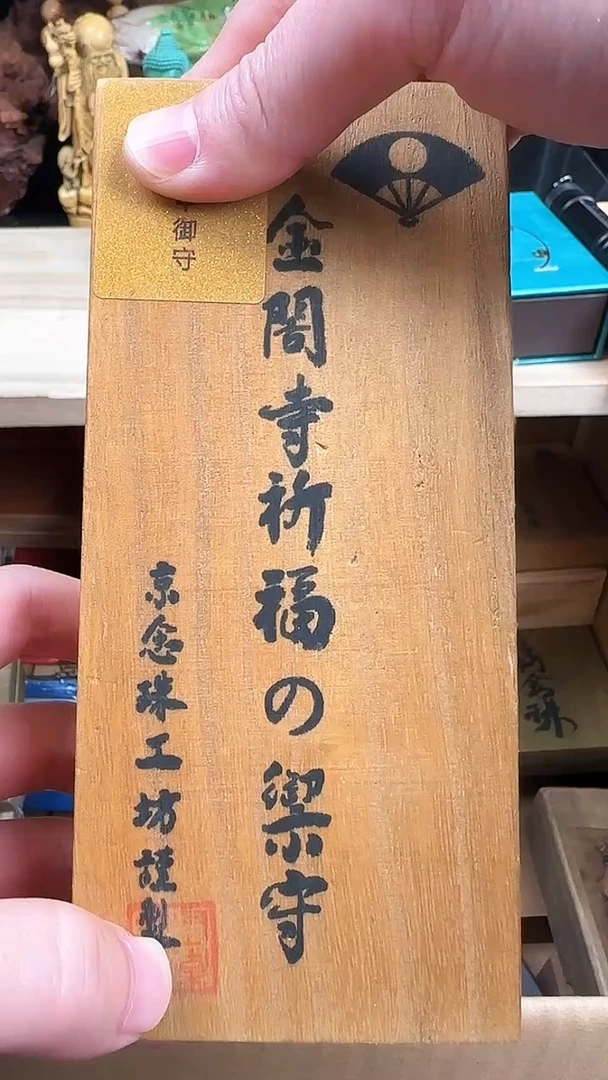 金閣寺祈福の禦守
京念珠工坊謹製
御守
念珠